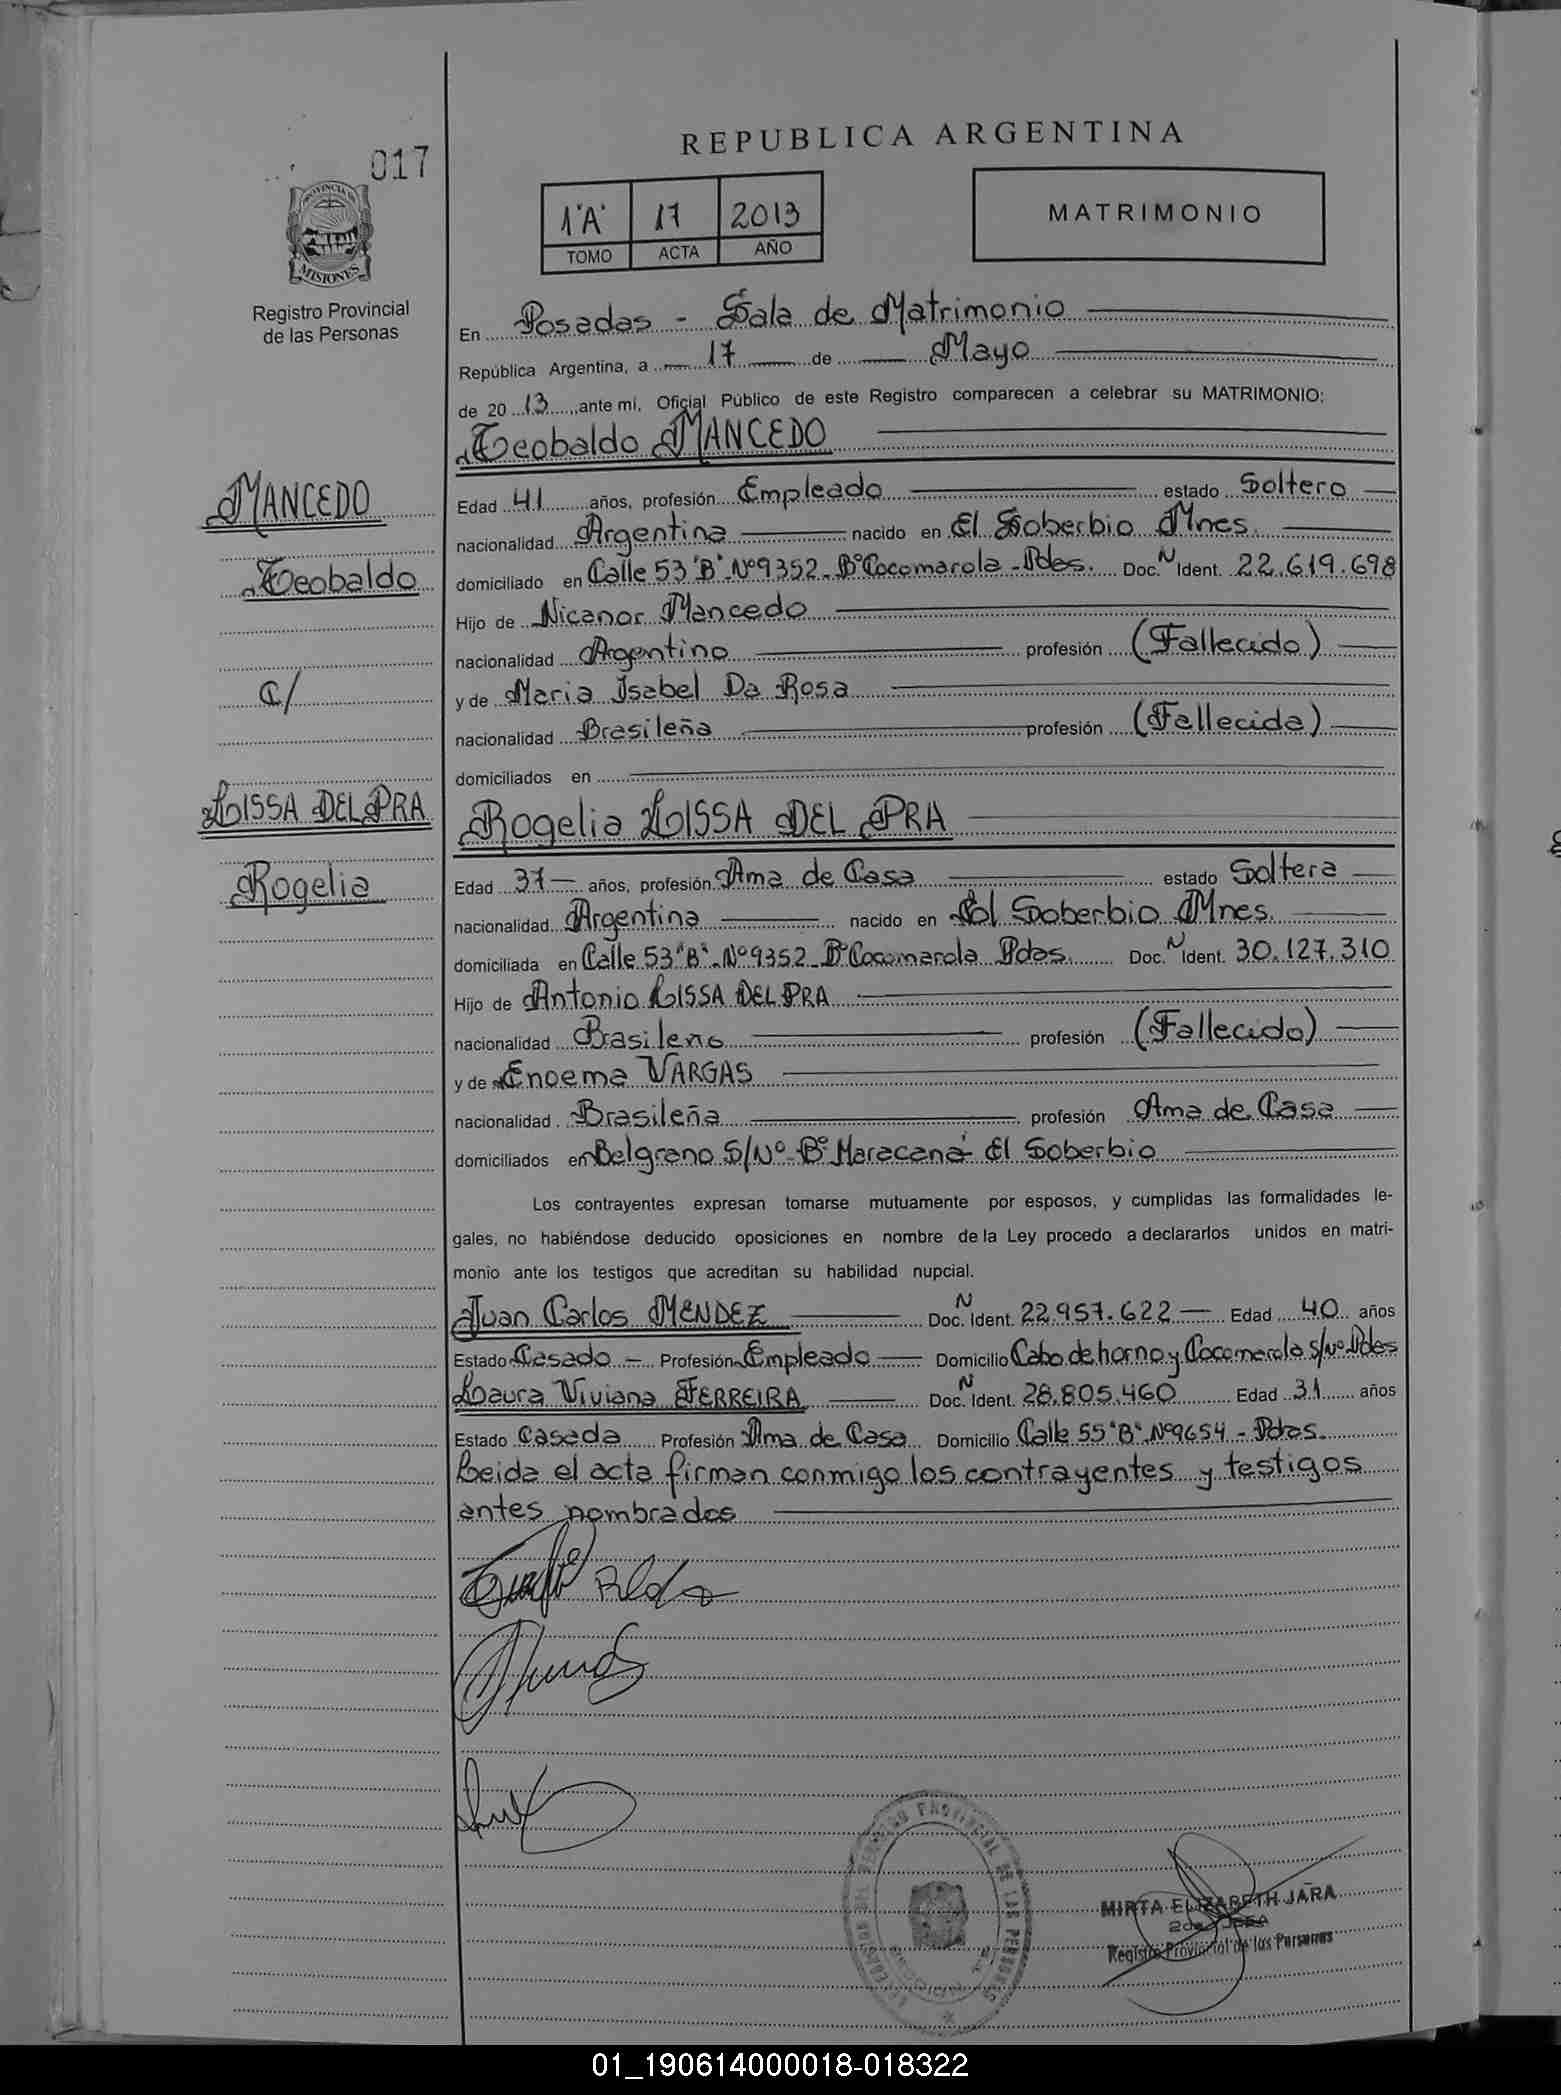 017
REPUBLICA ARGENTINA
1"A" 17 2013
TOMO ACTA AÑO
MATRIMONIO
PROVINCIA DE
MISIONES
Registro Provincial
de las Personas
En Posadas - Sala de Matrimonio
República Argentina, a 17 de Mayo
de 2013, ante mi, Oficial Público de este Registro comparecen a celebrar su MATRIMONIO:
Teobaldo MANCEDO
MANCEDO
Teobaldo
C/
LISSA DEL PRA
Rogelia
Edad 41 años, profesión Empleado estado Soltero
nacionalidad Argentina nacido en El Soberbio Mnes.
domiciliado en Calle 53 "B" Nº9352 - Bº Cocomarola - Pdas. Doc. N Ident. 22.619.698
Hijo de Nicanor Mancedo
nacionalidad Argentino profesión (Fallecido)
y de Maria Isabel Da Rosa
nacionalidad Brasileña profesión (Fallecida)
domiciliados en
Rogelia LISSA DEL PRA
Edad 37 años, profesión Ama de Casa estado Soltera
nacionalidad Argentina nacido en Col Soberbio Mnes.
domiciliada en Calle 53 "B" Nº9352 - Bº Cocomarola Pdas. Doc. N Ident. 30.127.310
Hijo de Antonio LISSA DEL PRA
nacionalidad Brasileno profesión (Fallecido)
y de Enoema VARGAS
nacionalidad Brasileña profesión Ama de Casa
domiciliados en Belgrano S/Nº - Bº Maracaná El Soberbio
Los contrayentes expresan tomarse mutuamente por esposos, y cumplidas las formalidades le-
gales, no habiéndose deducido oposiciones en nombre de la Ley procedo a declararlos unidos en matri-
monio ante los testigos que acreditan su habilidad nupcial.
Juan Carlos MENDEZ Doc. N Ident. 22.957.622 Edad 40 años
Estado Casado Profesión Empleado Domicilio Cabo de horno y Cocomarola S/Nº Pdas
Laura Viviana FERREIRA Doc. N Ident. 28.805.460 Edad 31 años
Estado Casada Profesión Ama de Casa Domicilio Calle 55 "B" Nº9654 - Pdas.
Leida el acta firman conmigo los contrayentes y testigos
antes nombrados
REGISTRO PROVINCIAL DE LAS PERSONAS
MIRTA ELIZABETH JARA
2da JEFA
Registro Provincial de las Personas
01_190614000018-018322